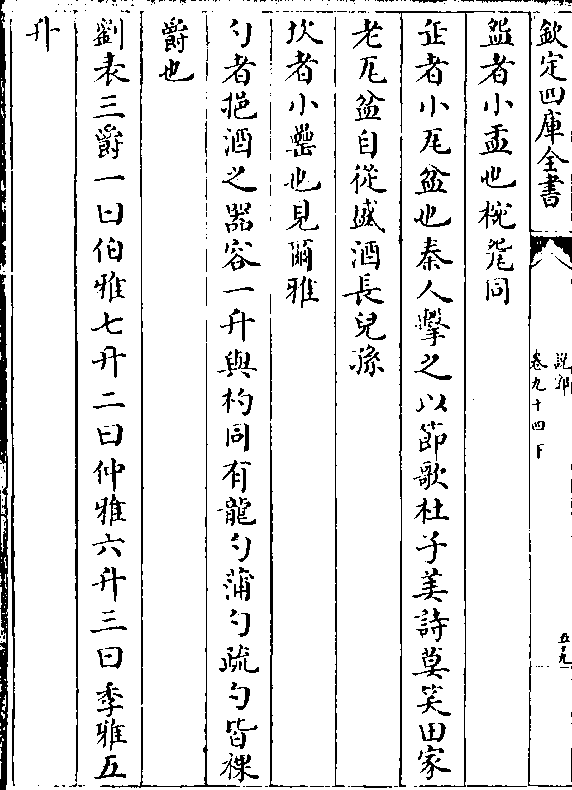 欽定四庫全書
說郛
卷九十四下
五十九
盌者小盂也椀㼝同
缶者小瓦盆也秦人擊之以節歌杜子美詩莫笑田家
老瓦盆自從盛酒長兒孫
坎者小罍也見爾雅
勺者挹酒之器容一升與杓同有龍勺蒲勺疏勺皆祼
爵也
劉表三爵一曰伯雅七升二曰仲雅六升三曰季雅五
升